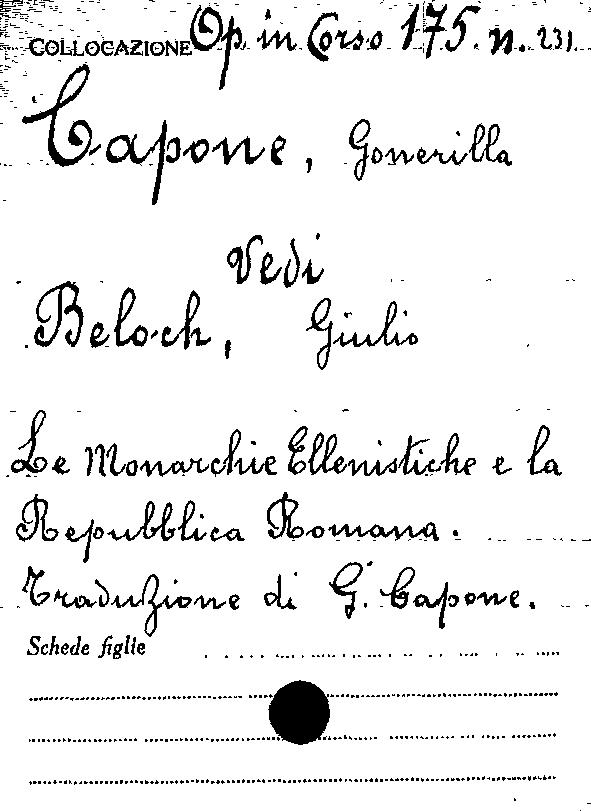 COLLOCAZIONE Op. in Corso 175. n. 231.
Capone, Gonerilla
Vedi
Beloch, Giulio
Le Monarchie Ellenistiche e la
Repubblica Romana.
Traduzione di G. Capone.
Schede figlie